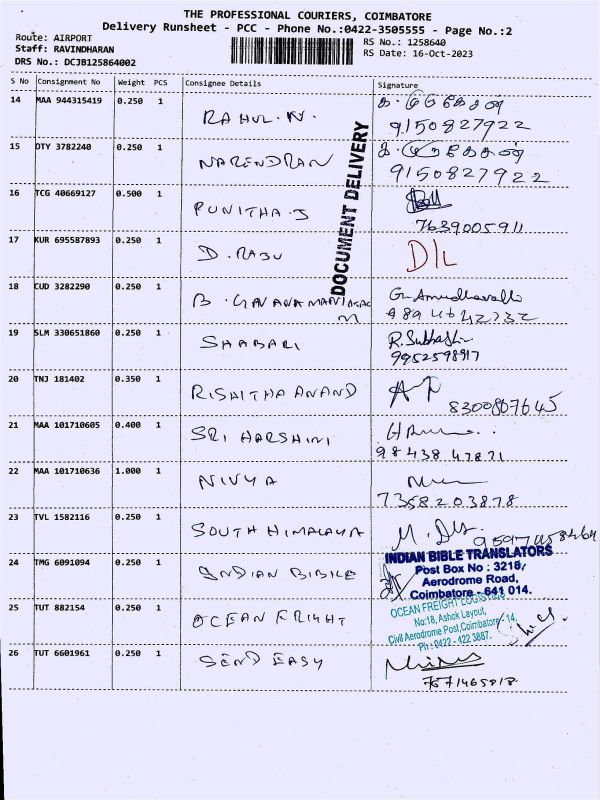 THE PROFESSIONAL COURIERS, COIMBATORE
Delivery Runsheet - PCC - Phone No.:0422-3505555 - Page No.:2
Route: AIRPORT
Staff: RAVINDHARAN
DRS No.: DCJB125864002
RS No.: 1258640
RS Date: 16-Oct-2023
S No Consignment No Weight PCS Consignee Details Signature
14 MAA 944315419 0.250 1 RAHUL.N.
9150827922
15 OTY 3782240 0.250 1 NARENDRAN
9150827922
DOCUMENT DELIVERY
16 TCG 40669127 0.500 1 PUNITHA.J
7639005911
17 KUR 695587893 0.250 1 D.RAJU D/L
18 CUD 3282290 0.250 1 B.
19 SLM 330651860 0.250 1 SHABARI
9952598917
20 TNJ 181402 0.350 1 RISHITHA ANAND
8300867645
21 MAA 101710605 0.400 1 SRI HARSHINI
22 MAA 101710636 1.000 1 NIVYA
7358203878
23 TVL 1582116 0.250 1 SOUTH HIMALAYA
24 TMG 6091094 0.250 1 INDIAN BIBILE
INDIAN BIBLE TRANSLATORS
Post Box No : 3218,
Aerodrome Road,
Coimbatore - 641 014.
25 TUT 882154 0.250 1 OCEAN FRIGHT
OCEAN FREIGHT LOGISTICS
No:18, Ashok Layout,
Civil Aerodrome Post, Coimbatore - 14.
Ph : 0422 - 422 3887.
26 TUT 6601961 0.250 1 SEND EASY